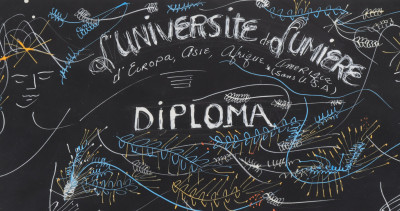 L'UNIVERSITÉ de LUMIÈRE
d'Europa, Asie, Afrique & Amérique
(sans U.S.A)
DIPLOMA